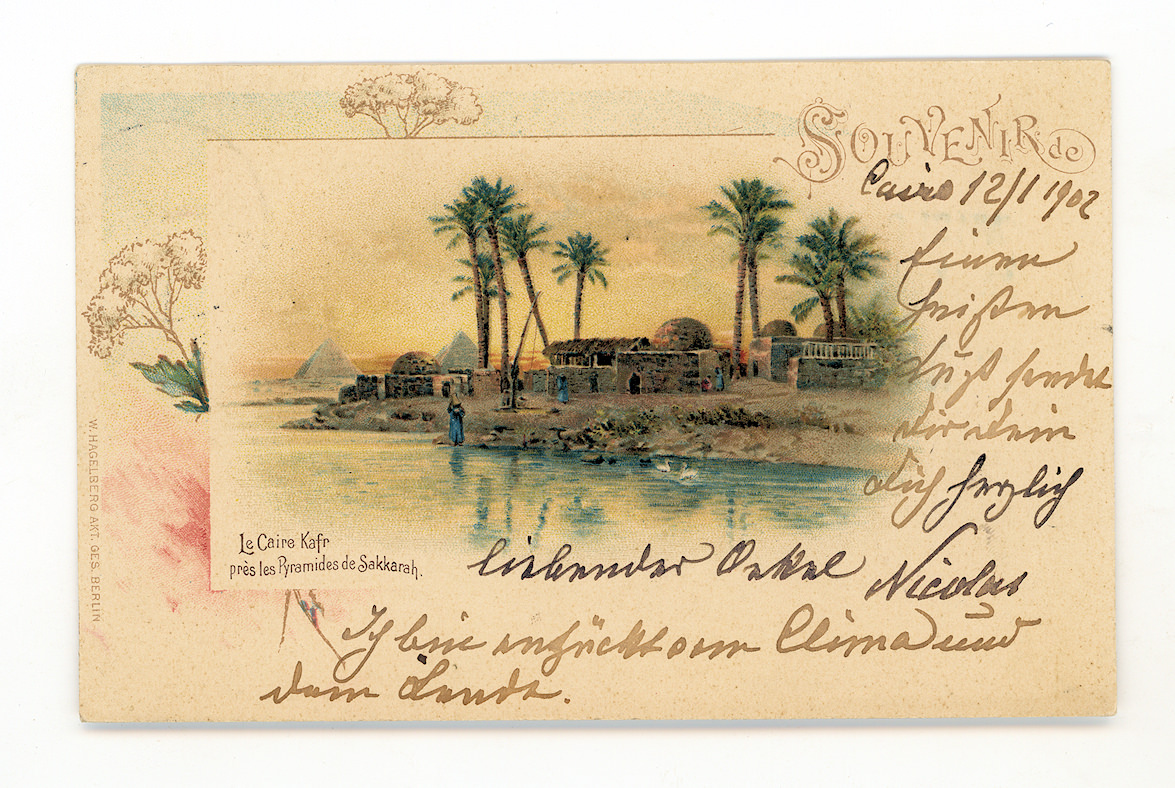 SOUVENIR de
Cairo 12/1 1902
Einen
heißen
Kuß sendet
dir dein
dich herzlich
liebender Onkel Nicolas
Ich bin entzückt vom Clima und
dem Lande.
Le Caire Kafr
près les Pyramides de Sakkarah.
W. HAGELBERG AKT. GES. BERLIN